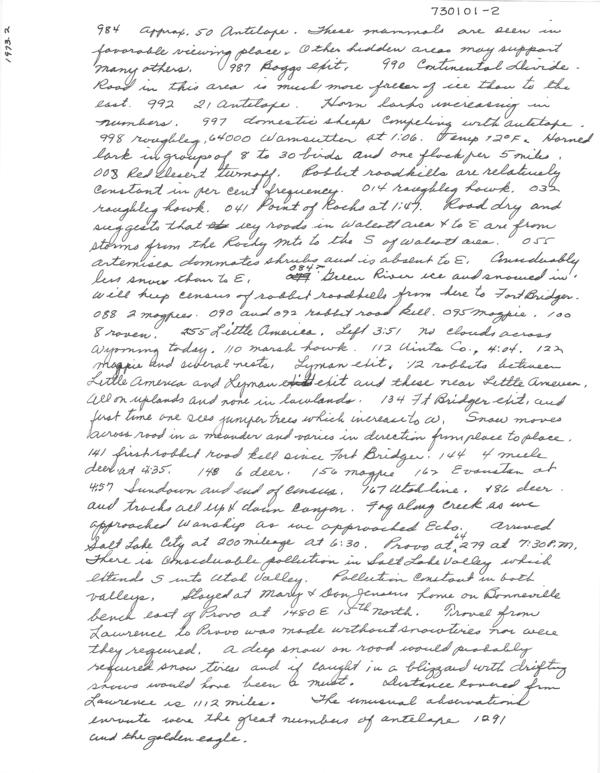 730101-2
1973-2
984 Approx. 50 Antelope. These mammals are seen in
favorable viewing place. Other hidden areas may support
many others. 987 Boggs exit. 990 Continental Divide.
Road in this area is much more freeer of ice than to the
east. 992 21 Antelope. Horn larks increasing in
numbers. 997 domestic sheep competing with antelope.
998 roughleg, 64000 Wamsutter at 1:06. Temp 12°F. Horned
lark in groups of 8 to 30 birds and one flock per 5 miles.
008 Red Desert turnoff. Rabbit roadkills are relatively
constant in per cent frequency. 014 roughleg hawk. 032
roughleg hawk. 041 Point of Rocks at 1:47. Road dry and
suggests that icy roads in Walcott area & to E are from
storms from the Rocky Mts to the S of Walcott area. 055
artemisia dominates shrubs and is absent to E. Considerably
less snow than to E. 084? Green River ice and snowed in.
Will keep census of rabbit roadkills from here to Fort Bridger.
088 2 magpies. 090 and 092 rabbit road kill. 095 magpie. 100
8 raven. Little America. Left 3:51 no clouds across
Wyoming today. 110 marsh hawk. 112 Uinta Co., 4:04. 122
magpie and several nests. Lyman exit. 12 rabbits between
Little America and Lyman exit and these near Little America.
All on uplands and none in lowlands. 134 Ft Bridger exit, and
first time one sees juniper trees which increase to W. Snow moves
across road in a meander and varies in direction from place to place.
141 first rabbit road kill since Fort Bridger. 144 4 mule
deer at 4:35. 148 6 deer. 156 magpie 162 Evanston at
4:57 Sundown and end of census. 167 Utah line. 186 deer
and tracks all up & down canyon. Fog along creek as we
approached Wanship as we approached Echo. Arrived
Salt Lake City at 200 mileage at 6:30. Provo at 64,279 at 7:30 P.M.
There is considerable pollution in Salt Lake Valley which
extends S into Utah Valley. Pollution constant in both
valleys. Stayed at Mary & Don Jensens home on Bonneville
bench east of Provo at 1480 E 15th North. Travel from
Lawrence to Provo was made without snowtires nor were
they required. A deep snow on road would probably
required snow tires and if caught in a blizzard with drifting
snows would have been a must. Distance covered from
Lawrence is 1112 miles. The unusual observations
enroute were the great numbers of antelope 1291
and the golden eagle.